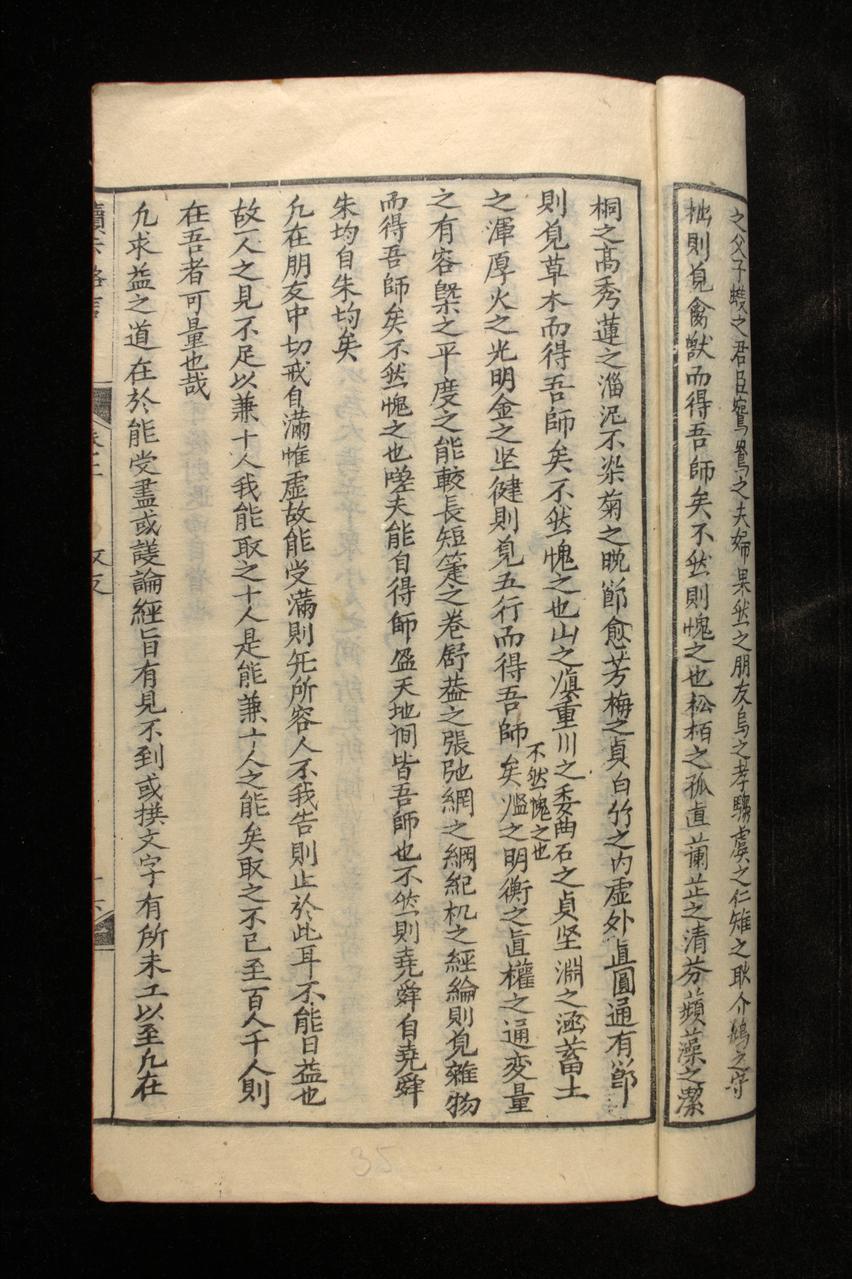 之父子螻之君臣鴛鴦之夫婦果然之朋友烏之孝騶虞之仁雉之耿介鳩之守
拙則覓禽獸而得吾師矣不然則愧之也松栢之孤直蘭芷之清芬蘋藻之潔
桐之高秀蓮之淄泥不染菊之晚節愈芳梅之貞白竹之内虛外直圓通有節
則覓草木而得吾師矣不然愧之也山之鎮重川之委曲石之貞坚淵之涵蓄土
之渾厚火之光明金之坚健則覓五行而得吾師矣
不然愧之也
鑑之明衡之直權之通変量
之有容槩之平度之能較長短箑之卷舒葢之張弛網之綱紀机之經綸則覓雜物
而得吾師矣不然愧之也嗟夫能自得師盈天地間皆吾師也不然則堯舜自堯舜
朱均自朱均矣
凢在朋友中切戒自滿惟虛故能受滿則旡所容人不我告則止於此耳不能日益也
故一人之見不足以兼十人我能取之十人是能兼十人之能矣取之不已至百人千人則
在吾者可量也哉
凢求益之道在於能受盡或議論經旨有見不到或撰文字有所未工以至凢在
十六
35